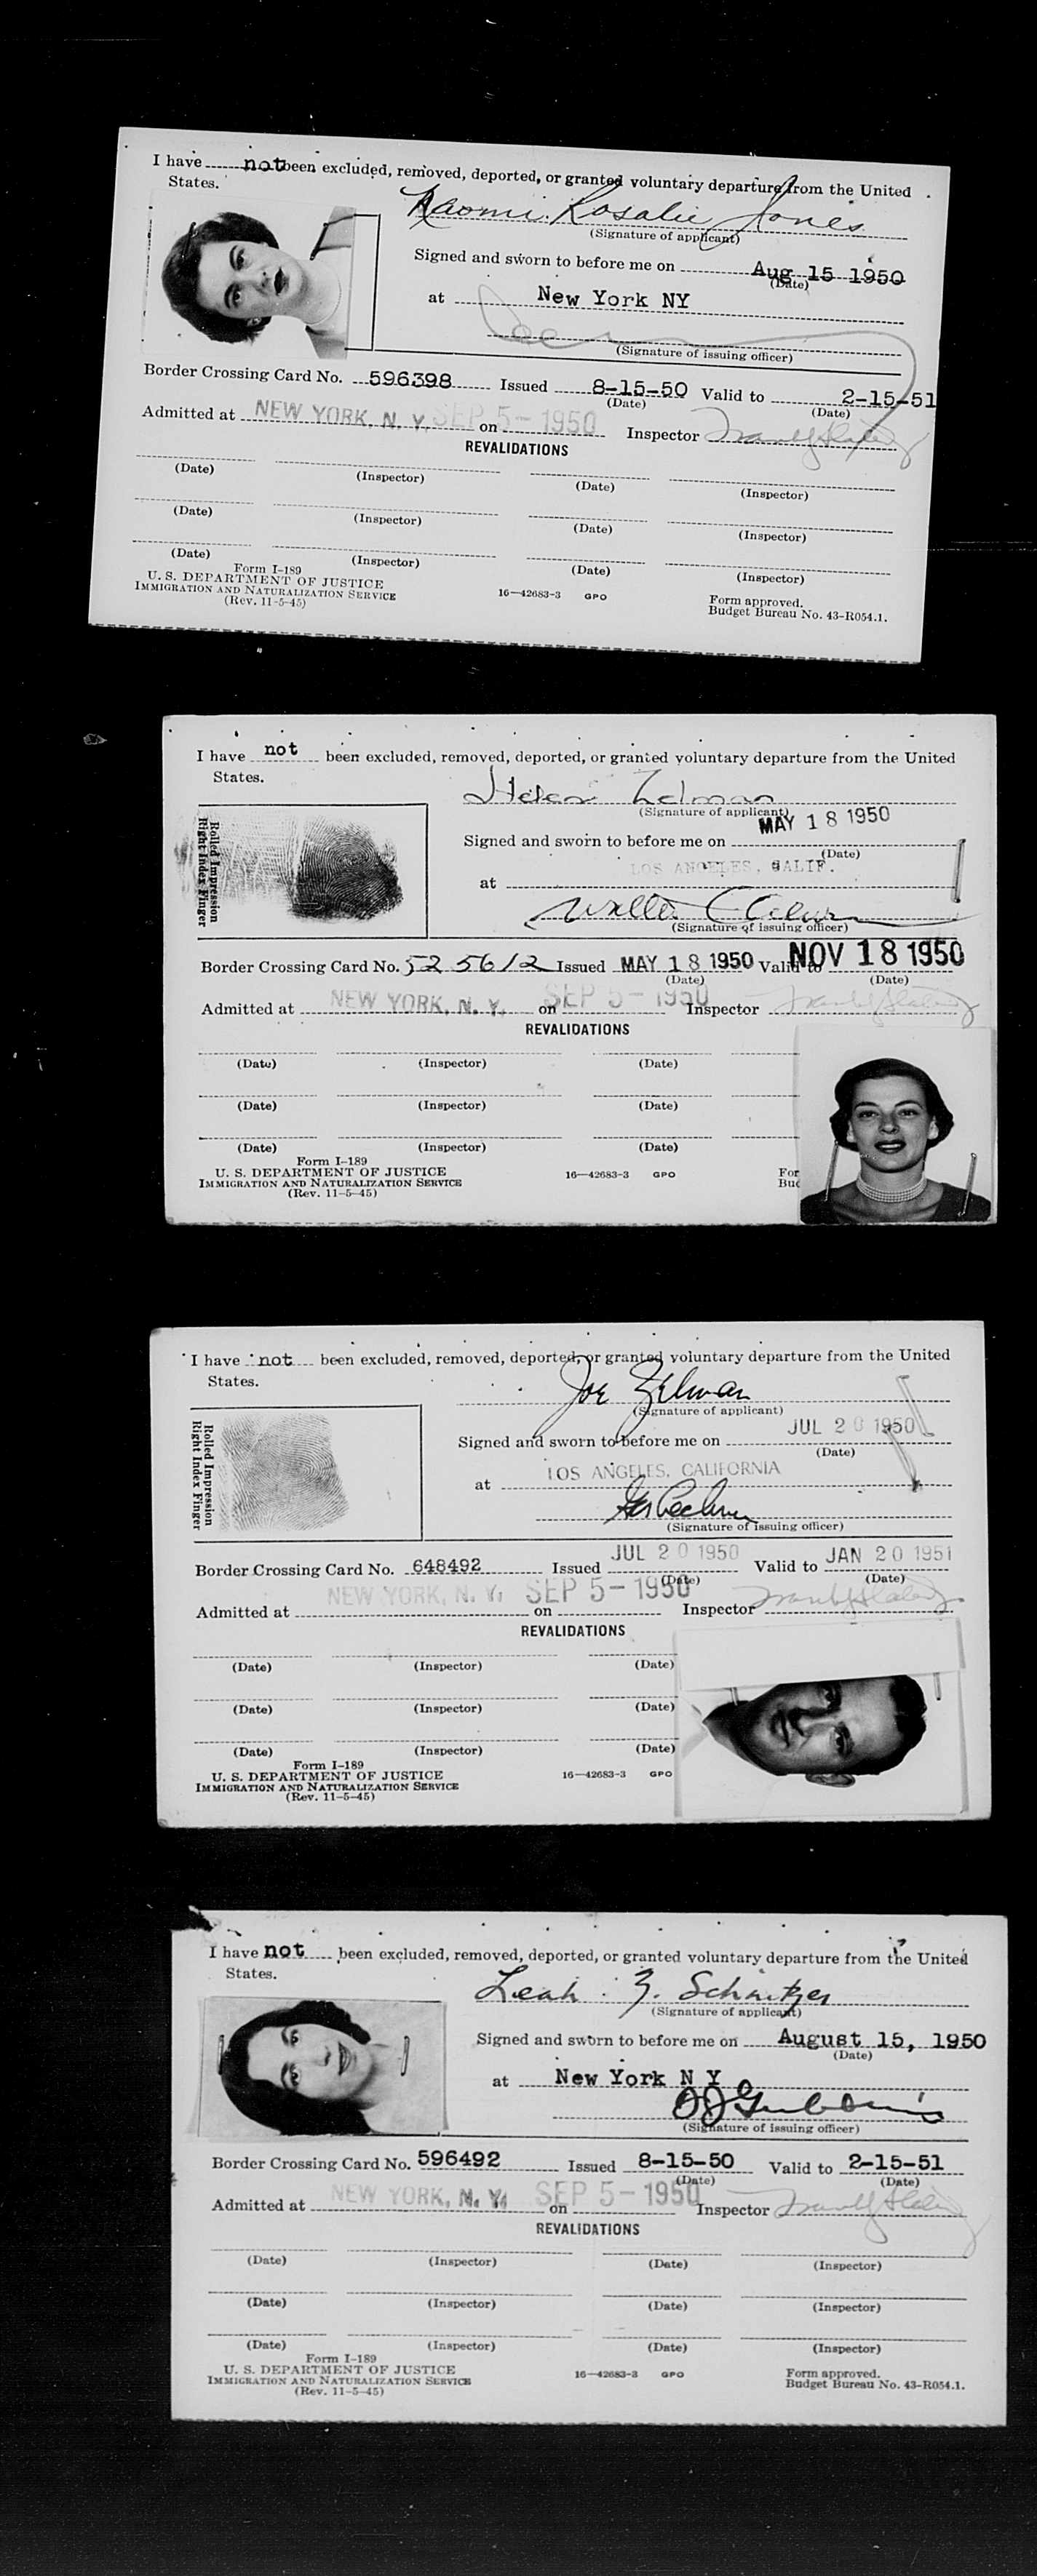 I have not been excluded, removed, deported, or granted voluntary departure from the United
States.
Naomi Rosalie Jones
(Signature of applicant)
Signed and sworn to before me on Aug 15 1950
(Date)
at New York NY
(Signature of issuing officer)
Border Crossing Card No. 596398 Issued 8-15-50 Valid to 2-15-51
(Date) (Date)
Admitted at NEW YORK, N. Y. on SEP 5-1950 Inspector
REVALIDATIONS
(Date) (Inspector) (Date) (Inspector)
(Date) (Inspector) (Date) (Inspector)
(Date) (Inspector) (Date) (Inspector)
Form I-189
U. S. DEPARTMENT OF JUSTICE
IMMIGRATION AND NATURALIZATION SERVICE
(Rev. 11-5-45)
16—42683-3 GPO
Form approved.
Budget Bureau No. 43-R054.1.
I have not been excluded, removed, deported, or granted voluntary departure from the United
States.
Helen Zelman
(Signature of applicant)
Rolled Impression
Right Index Finger
Signed and sworn to before me on MAY 18 1950
(Date)
at LOS ANGELES, CALIF.
(Signature of issuing officer)
Border Crossing Card No. 525612 Issued MAY 18 1950 Valid to NOV 18 1950
(Date) (Date)
Admitted at NEW YORK, N. Y. on SEP 5-1950 Inspector
REVALIDATIONS
(Date) (Inspector) (Date)
(Date) (Inspector) (Date)
(Date) (Inspector) (Date)
Form I-189
U. S. DEPARTMENT OF JUSTICE
IMMIGRATION AND NATURALIZATION SERVICE
(Rev. 11-5-45)
16—42683-3 GPO
For
Bud
I have not been excluded, removed, deported, or granted voluntary departure from the United
States.
Joe Zelman
(Signature of applicant)
Rolled Impression
Right Index Finger
Signed and sworn to before me on JUL 20 1950
(Date)
at LOS ANGELES, CALIFORNIA
(Signature of issuing officer)
Border Crossing Card No. 648492 Issued JUL 20 1950 Valid to JAN 20 1951
(Date) (Date)
Admitted at NEW YORK, N. Y. on SEP 5-1950 Inspector
REVALIDATIONS
(Date) (Inspector) (Date)
(Date) (Inspector) (Date)
(Date) (Inspector) (Date)
Form I-189
U. S. DEPARTMENT OF JUSTICE
IMMIGRATION AND NATURALIZATION SERVICE
(Rev. 11-5-45)
16—42683-3 GPO
I have not been excluded, removed, deported, or granted voluntary departure from the United
States.
Leah Z. Schnitzer
(Signature of applicant)
Signed and sworn to before me on August 15, 1950
(Date)
at New York N Y
(Signature of issuing officer)
Border Crossing Card No. 596492 Issued 8-15-50 Valid to 2-15-51
(Date) (Date)
Admitted at NEW YORK, N. Y. on SEP 5-1950 Inspector
REVALIDATIONS
(Date) (Inspector) (Date) (Inspector)
(Date) (Inspector) (Date) (Inspector)
(Date) (Inspector) (Date) (Inspector)
Form I-189
U. S. DEPARTMENT OF JUSTICE
IMMIGRATION AND NATURALIZATION SERVICE
(Rev. 11-5-45)
16—42683-3 GPO
Form approved.
Budget Bureau No. 43-R054.1.